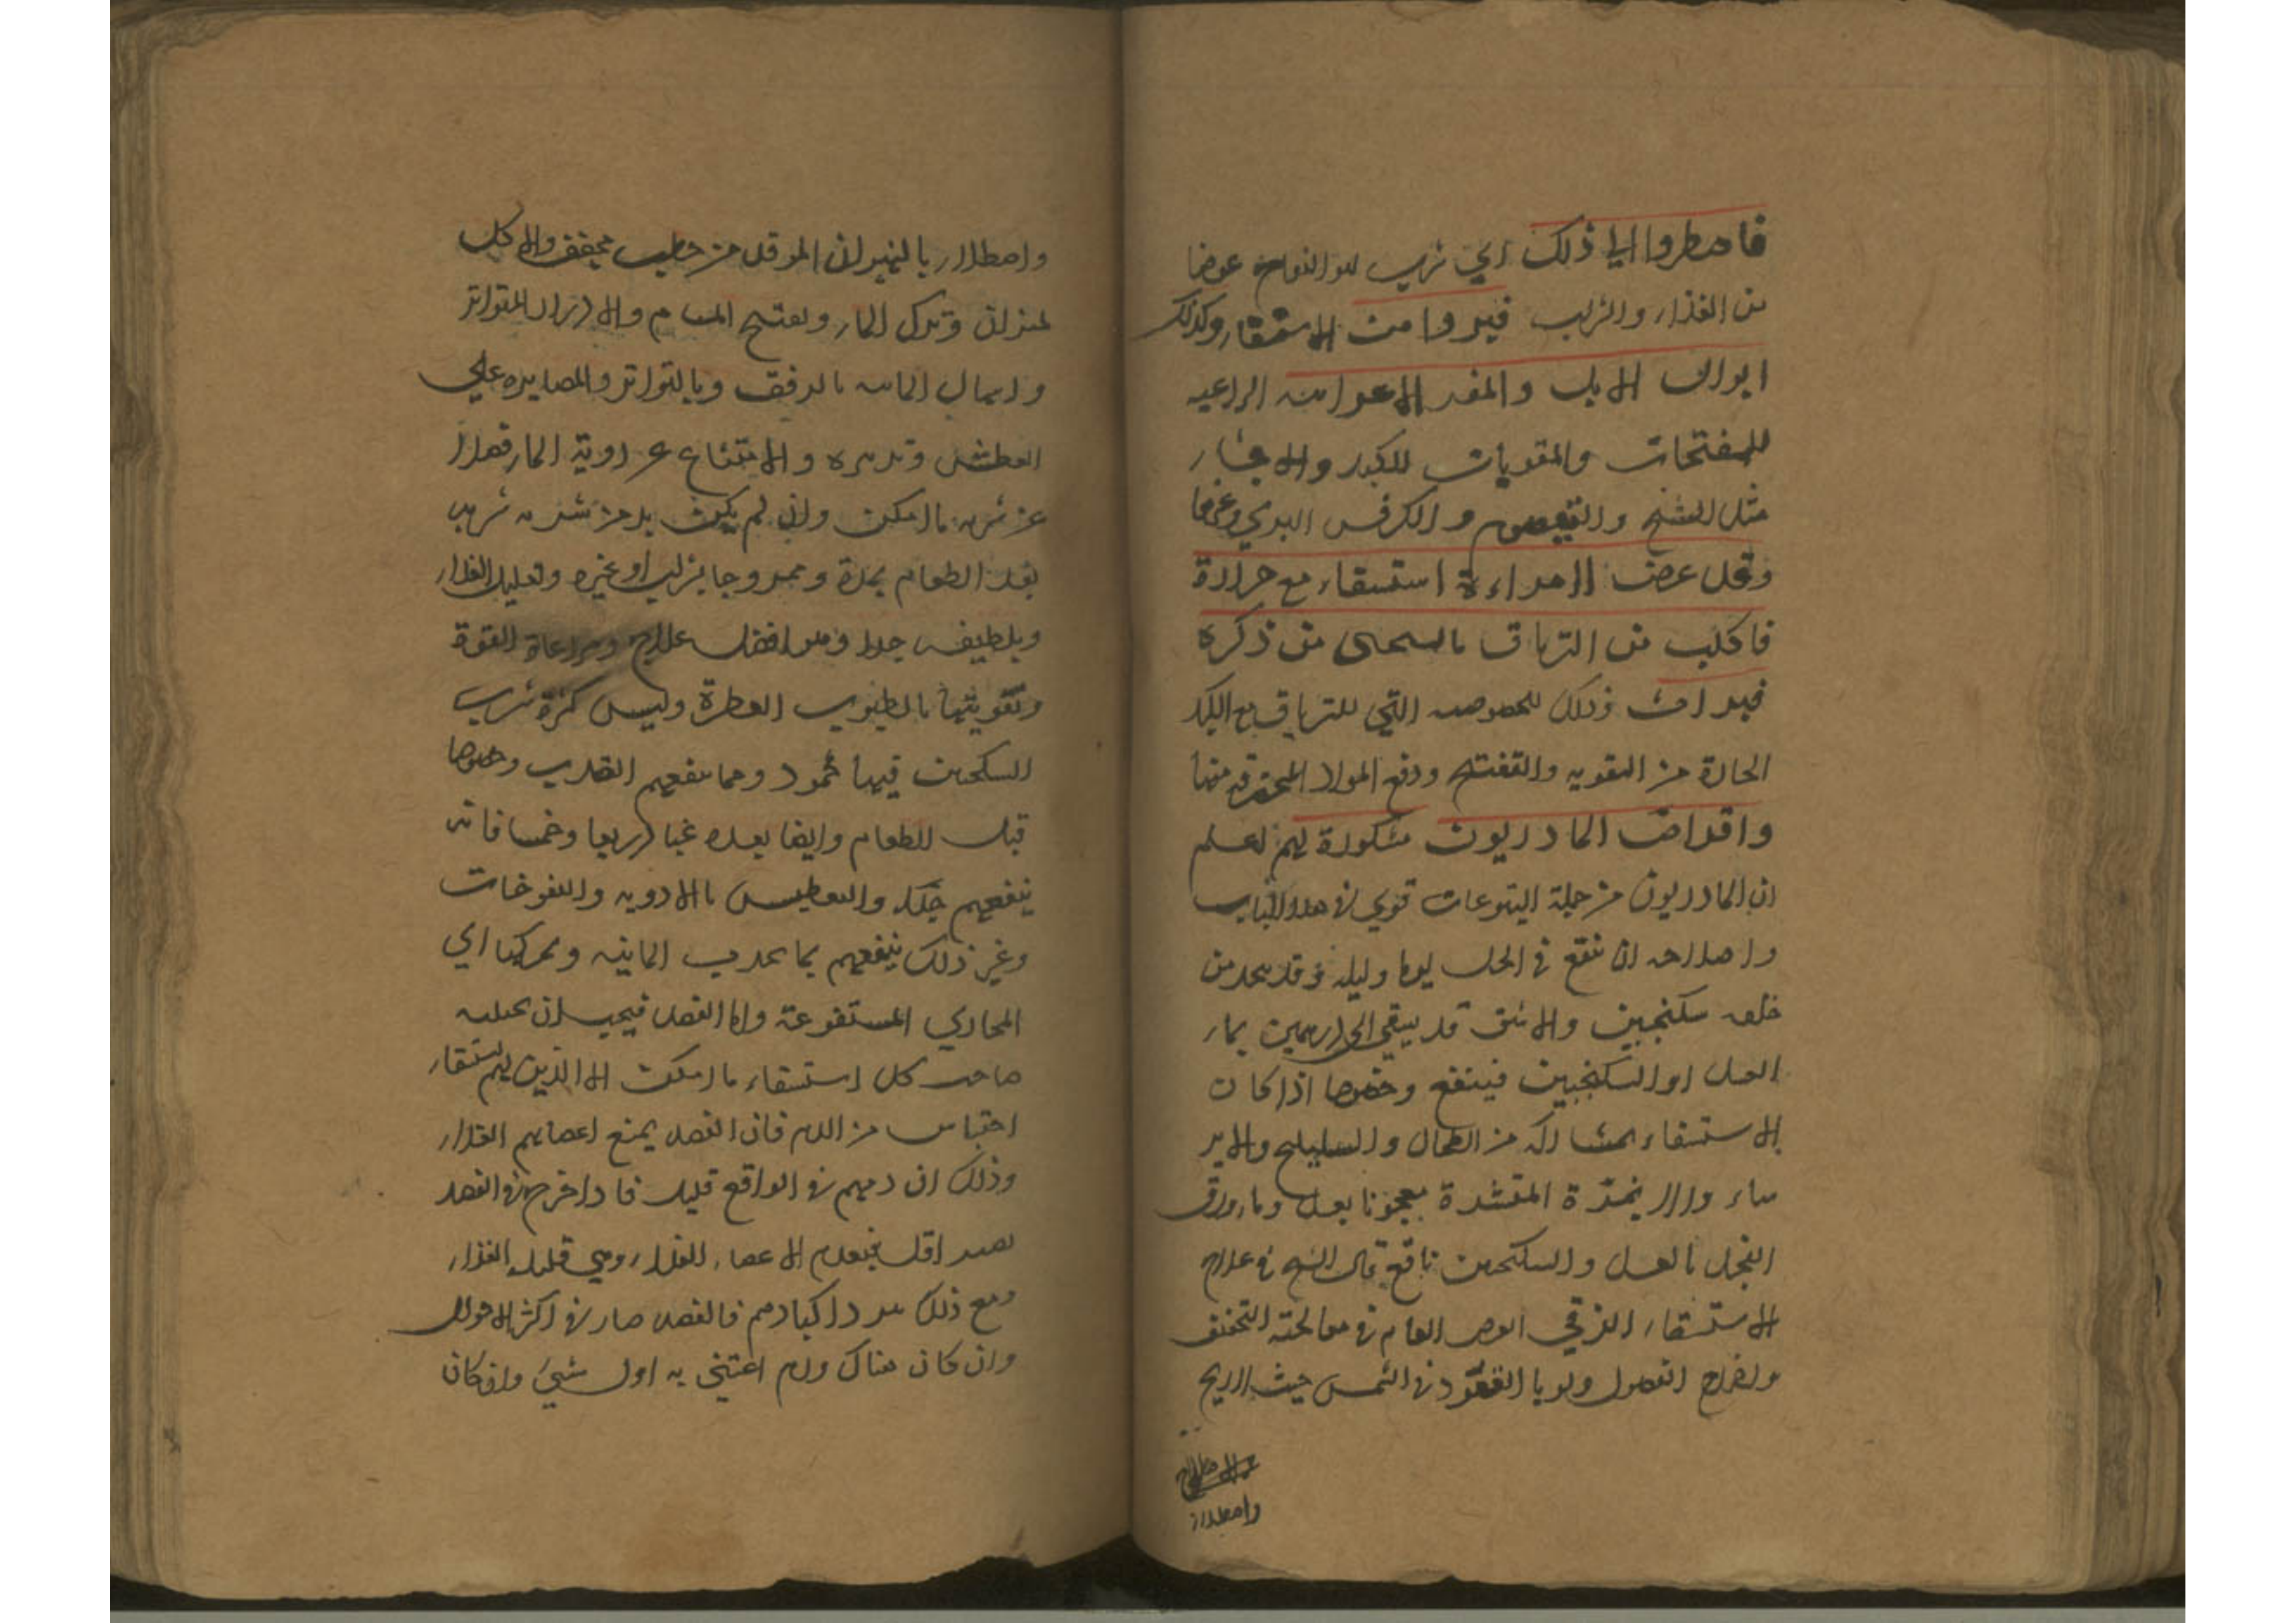 فاضطروا الى ذلك اي شرب عوضا
من الغذاء والشراب فبروا من الاستسقاء وكذلك
ابوال الابل والمعز الاعرابية الراعية
للمفتحات والمقويات للكبد والاحشاء
مثل الشيح والقيصوم والكرفس البري وغيرها
وقد عرض لامراءة استسقاء مع حرارة
فاكلت من الرمان ما يستحى من ذكره
فبرات وذلك للخصوصية التي للرمان مع الكبد
الحارة من التقوية والتفتيح ودفع المواد المحترقة منها
واقراص المازريون مشكورة لهم لعلم
ان المازريون من جملة اليتوعات قوي في هذا الباب
واصلاحه ان ينقع في الخل يوما وليلة وقد يتخذ من
خله سكنجبين والاشق قد يسقى الى درهمين بماء
العسل او السكنجبين فينفع وخصوصا اذا كان
الاستسقاء بمشاركة من الطحال
المقشرة معجونا بعسل وماء ورق
الفجل بالعسل والسكنجبين نافع قال الشيخ في علاج
الاستسقاء الزقي الغرض العام في معالجته التجفيف
واخراج الفضول ولو بالقعود في الشمس حيث لا ريح
واصطلاء
واصطلاء بالنيران الموقدة من حطب مجفف والاكل
بميزان وترك الماء وتفتيح المسام والادرار المتواتر
واسهال المائية بالرفق وبالتواتر والمصابرة على
العطش وتدبيره والامتناع عن روية الماء فضلا
عن شربه ما امكن وان لم يكن بد من شربه شرب
بعد الطعام بمدة وممزوجا بشراب او غيره وتقليل الغذاء
وتلطيفه جدا وهو افضل علاج ومراعاة القوة
وتقويتها بالطيوب العطرة وليس كثرة شرب
السكنجبين فيها بمحمود ومما ينفعهم القذف وخصوصا
قبل الطعام وايضا بعده غبا وربعا وخمسا فانه
ينفعهم جدا والتعطيس بالادوية والنفوخات
وغير ذلك ينفعهم بما يحدر المائية ويحركها الى
المجاري المستفرغة واما الفصد فيجب ان يجتنبه
صاحب كل استسقاء ما امكن الا الذين بهم استسقاء
احتباس من الدم فان الفصد يمنع اعضاءهم الغذاء
وذلك ان دمهم في الواقع قليل فاذا اخرج في الفصد
يصير اقل فيعدم الاعضاء الغذاء وهي قليل الغذاء
ومع ذلك يبرد اكبادهم فالفصد ضار في اكثر الاحوال
وان كان هناك ورم اعتنى به اول شيء وان كان